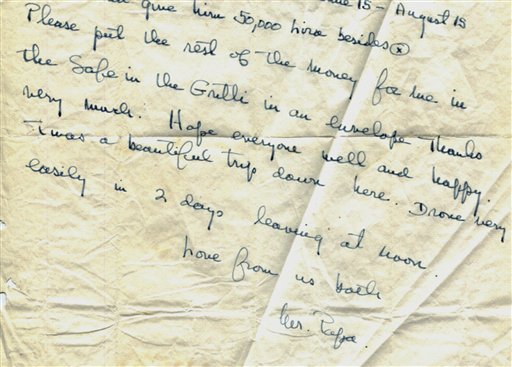 give him 50,000 lira besides ⓧ
Please put the rest of the money for me in
the Safe in the Gritti in an envelope. Thanks
very much. Hope everyone well and happy.
Twas a beautiful trip down here. Drove very
easily in 2 days leaving at noon.
Love from us both
Mr. Papa